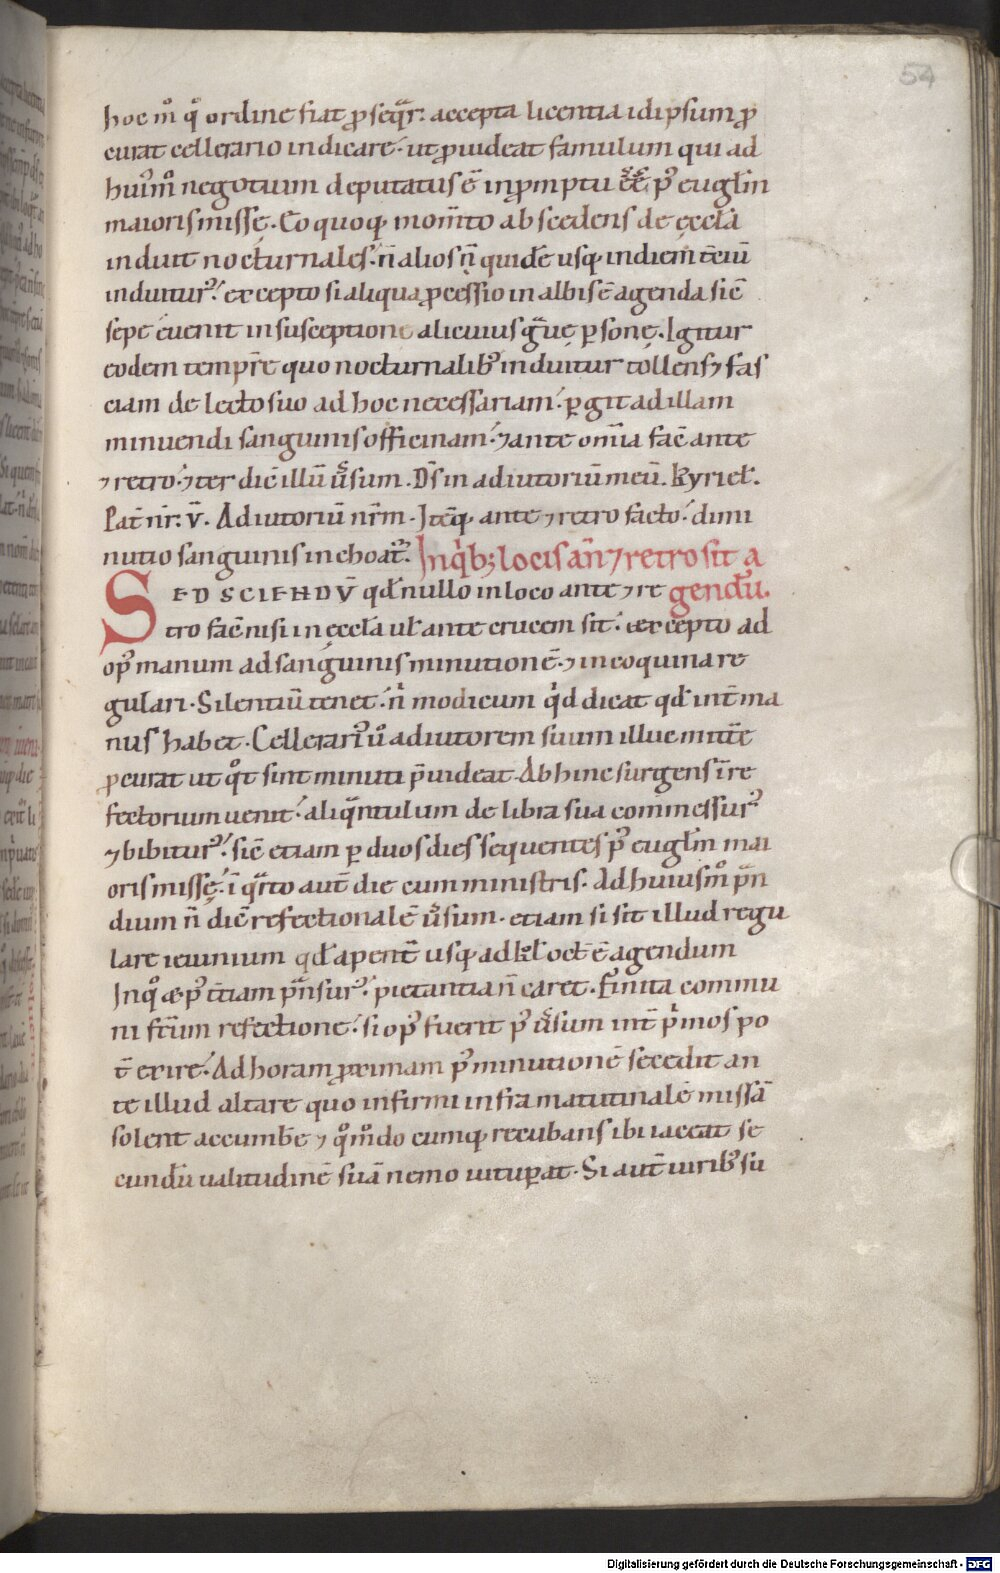 54
hoc m̊ q̊ ordine fiat ꝓseqͣr. accepta licentia idipsum ꝓ
curat cellerario indicare. ut ꝓuideat famulum qui ad
huiꝰm̊ negotium deputatus ē in promptu ēē pꝰ euḡlm
maioris missę. Eo quoqꝫ mom̄to abscedens de ęccl̄a
induit nocturnales. n̄ alios n̄ quidē usqꝫ in diem t̄ciū
induiturꝰ. excepto si aliqua ꝓcessio in albis ē agenda sic̄
sepe euenit in susceptione alicuius gͣuę ꝑsonę. Igitur
eodem temp̄re quo nocturnalibꝰ induitur tollens ⁊ fas
ciam de lecto suo ad hoc necessariam. ꝑgit ad illam
minuendi sanguinis officinam. ⁊ ante om̄ia fac̄ ante
⁊ retro. ⁊ ter dic̄ illū ūsum. D̄s in adiutoriū meū. Kyriel̄.
Pat̄ nr̄. v̄. Adiutoriū nr̄m. Itēqꝫ ante ⁊ retro facto. dimi
nutio sanguinis inchoat᷑. Inq̇bꝫ locis an̄ ⁊ retro sit a
SED SCIENDV̄ qd̄ nullo in loco ante ⁊ re gendū.
tro fac̄ nisi in ęccl̄a ul̄ ante crucem sit. excepto ad
opꝰ manum ad sanguinis minutionē. ⁊ in coquina re
gulari. Silentiū tenet. n̄ modicum q̇d dicat qd̄ int̄ ma
nus habet. Cellerariꝰ ů adiutorem suum illuc mitt̄e
ꝓcurat ut qͦt sint minuti p̄uideat. Abhinc surgens ī re
fectorium uenit. aliqͣntulum de libra sua commessurꝰ
⁊ bibiturꝰ. sic̄ etiam ꝑ duos dies sequentes pꝰ euḡlm mai
oris missę. ī qͣrto aut̄ die cum ministris. Ad huiusm̊ pͣn
dium n̄ dic̄ refectionalē ūsum. etiam si sit illud regu
lare ieiunium qd̄ a pent̄ usqꝫ ad kl̄ oct̄ ē agendum
Inqͦ & pꝰ t̄tiam pͣnsurꝰ. pietantia n̄ caret. Finita commu
ni fr̄um refectione. si opꝰ fuerit pꝰ ūsum int̄ pͥmos po
t̄ exire. Ad horam ꝓximam pꝰ minutionē secedit an
te illud altare quo infirmi infra matutinalē missā
solent accumbe ⁊ qͦm̊do cumqꝫ recubans ibi iaceat se
cundū ualitudinē suā nemo uituꝑat. Si aut̄ uiribꝰ su
Digitalisierung gefördert durch die Deutsche Forschungsgemeinschaft - DFG